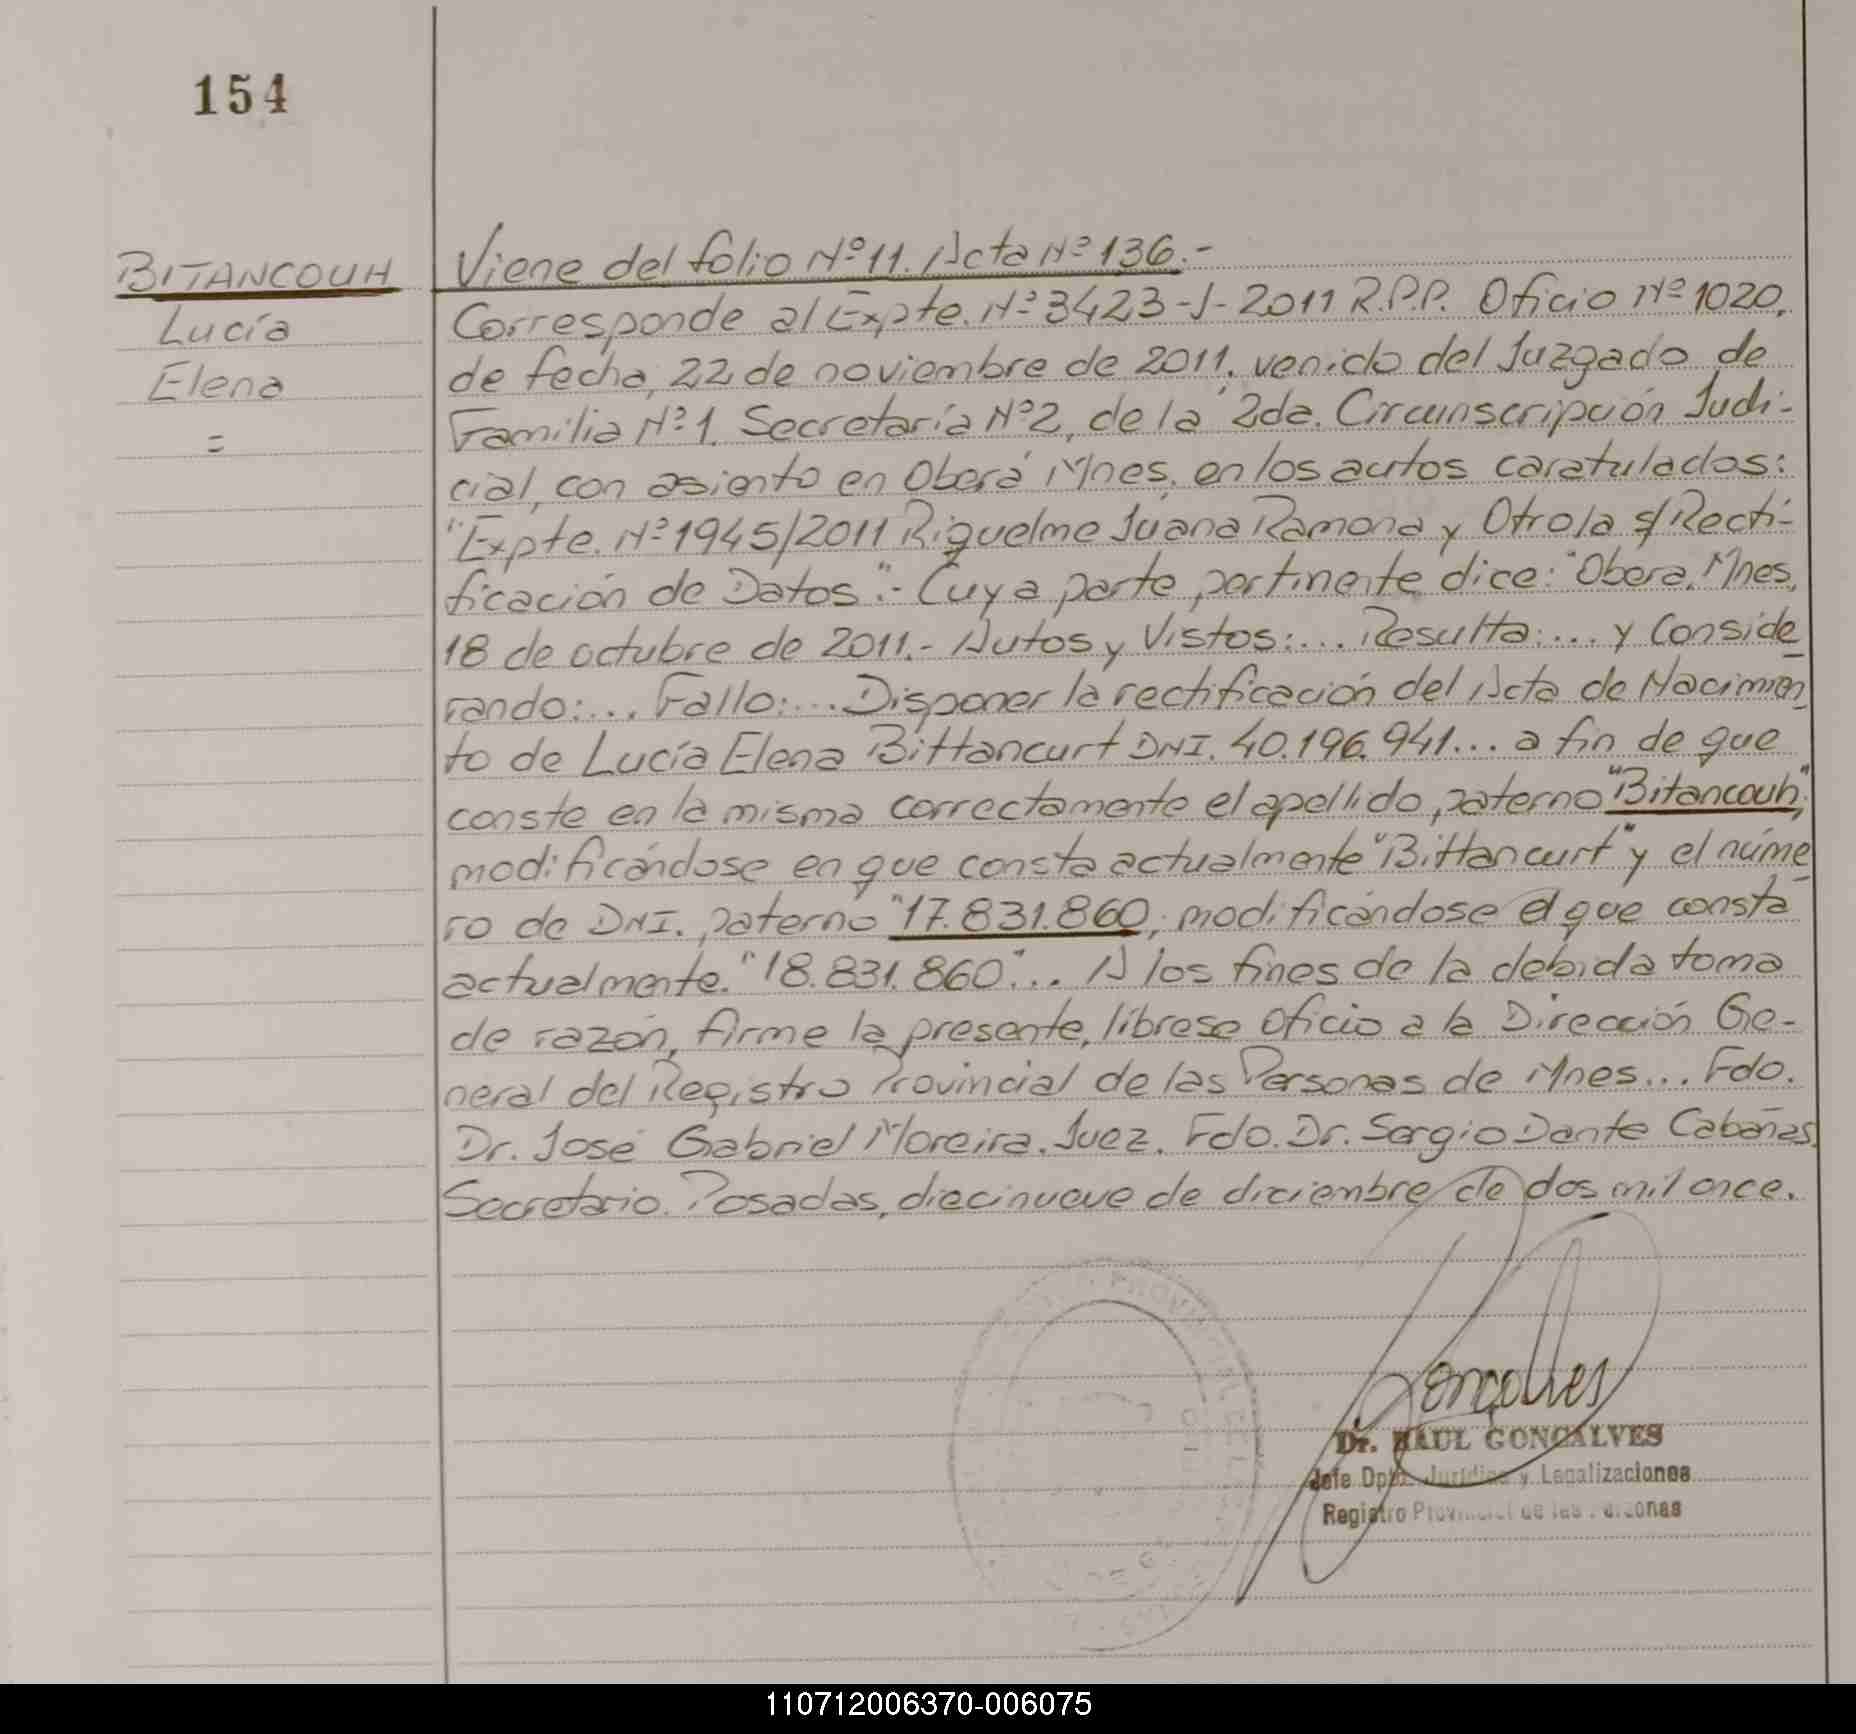 154
BITANCOUH
Lucía
Elena
=
Viene del folio Nº 11. Acta Nº 136.-
Corresponde al Expte. Nº 3423-J-2011 R.P.P. Oficio Nº 1020,
de fecha, 22 de noviembre de 2011. venido del Juzgado de
Familia Nº 1. Secretaría Nº 2, de la 2da. Circunscripción Judi-
cial, con asiento en Oberá Mnes. en los autos caratulados:
"Expte. Nº 1945/2011 Riquelme Juana Ramona y Otro/a s/Recti-
ficación de Datos".- Cuya parte pertinente dice: "Obera, Mnes,
18 de octubre de 2011.- Autos y Vistos:... Resulta:... y Conside
rando:... Fallo:... Disponer la rectificación del Acta de Nacimien
to de Lucía Elena Bittancurt DNI. 40.196.941... a fin de que
conste en la misma correctamente el apellido paterno "Bitancouh",
modificándose en que consta actualmente "Bittancurt" y el núme
ro de DNI. paterno "17.831.860, modificándose el que consta
actualmente. "18.831.860"... A los fines de la debida toma
de razón, firme la presente, líbrese oficio a la Dirección Ge-
neral del Registro Provincial de las Personas de Mnes... Fdo.
Dr. José Gabriel Moreira. Juez. Fdo. Dr. Sergio Dante Cabañas
Secretario. Posadas, diecinueve de diciembre de dos mil once.
Gonçalves
Dr. RAUL GONCALVES
Jefe Dpto. Jurídico y Legalizaciones
Registro Provincial de las Personas
110712006370-006075